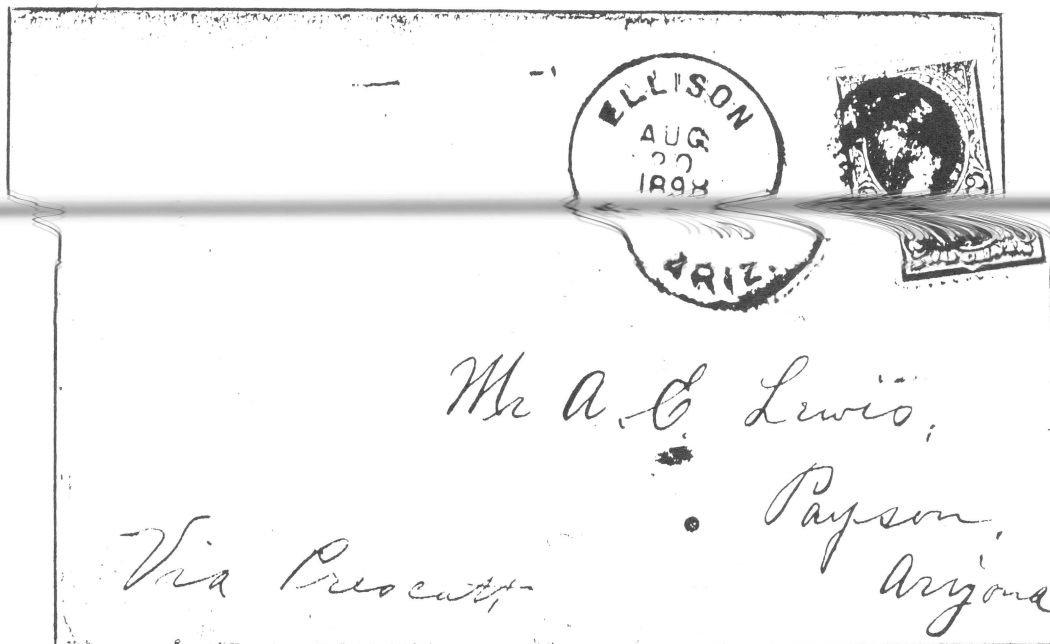 ELLISON
AUG
1898
ARIZ.
Mr A. C. Lewis,
Payson,
Arizona
Via Prescott,